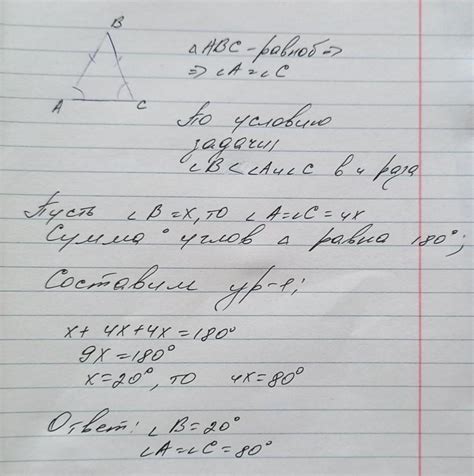 B
A
C
△ABC - равноб ⇒
⇒ ∠A = ∠C
По условию
задачи
∠B < ∠A и ∠C в 4 раза
Пусть ∠B = x, то ∠A = ∠C = 4x
Сумма углов △ равна 180°;
Составим ур-е;
x + 4x + 4x = 180°
9x = 180°
x = 20°, то 4x = 80°
Ответ: ∠B = 20°
∠A = ∠C = 80°